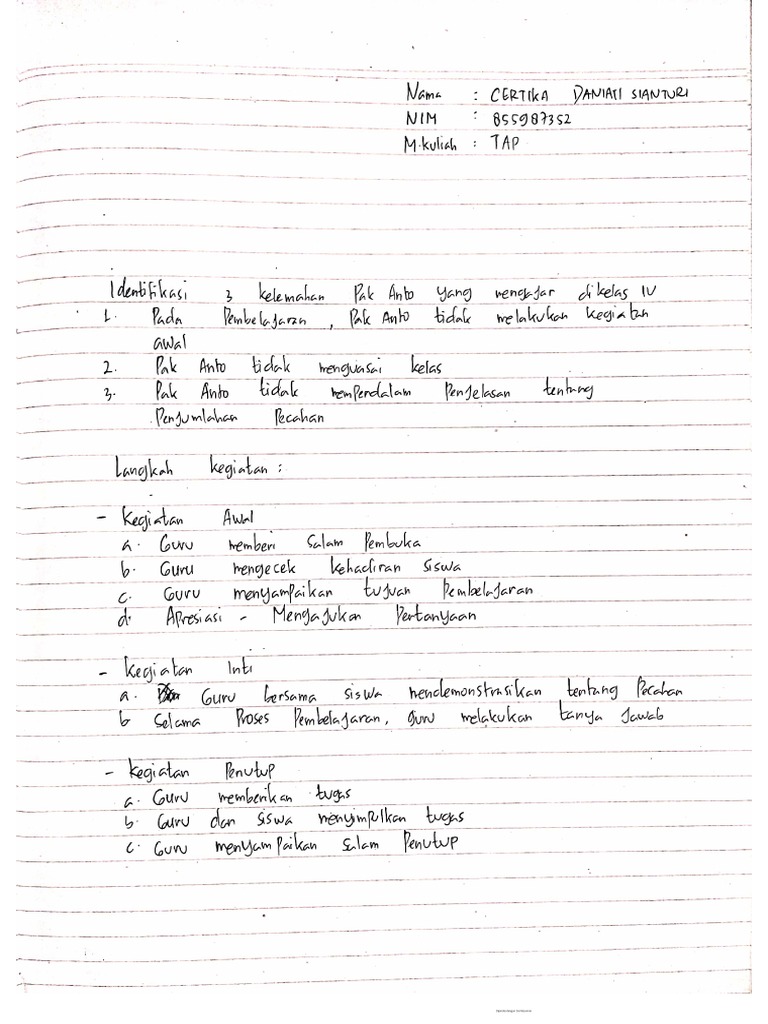 Nama : CERTIKA DANIATI SIANTURI
NIM : 855987352
M.kuliah : TAP
Identifikasi 3 kelemahan Pak Anto yang mengajar dikelas IV
1. Pada Pembelajaran, Pak Anto tidak melakukan kegiatan
awal
2. Pak Anto tidak menguasai kelas
3. Pak Anto tidak memperdalam Penjelasan tentang
Penjumlahan Pecahan
Langkah kegiatan :
- Kegiatan Awal
a. Guru memberi Salam Pembuka
b. Guru mengecek kehadiran siswa
c. Guru menyampaikan tujuan Pembelajaran
d. Apresiasi - Mengajukan Pertanyaan
- Kegiatan Inti
a. Guru bersama siswa mendemonstrasikan tentang Pecahan
b Selama Proses Pembelajaran, guru melakukan tanya Jawab
- Kegiatan Penutup
a. Guru memberikan tugas
b. Guru dan siswa menyimpulkan tugas
c. Guru menyampaikan Salam Penutup